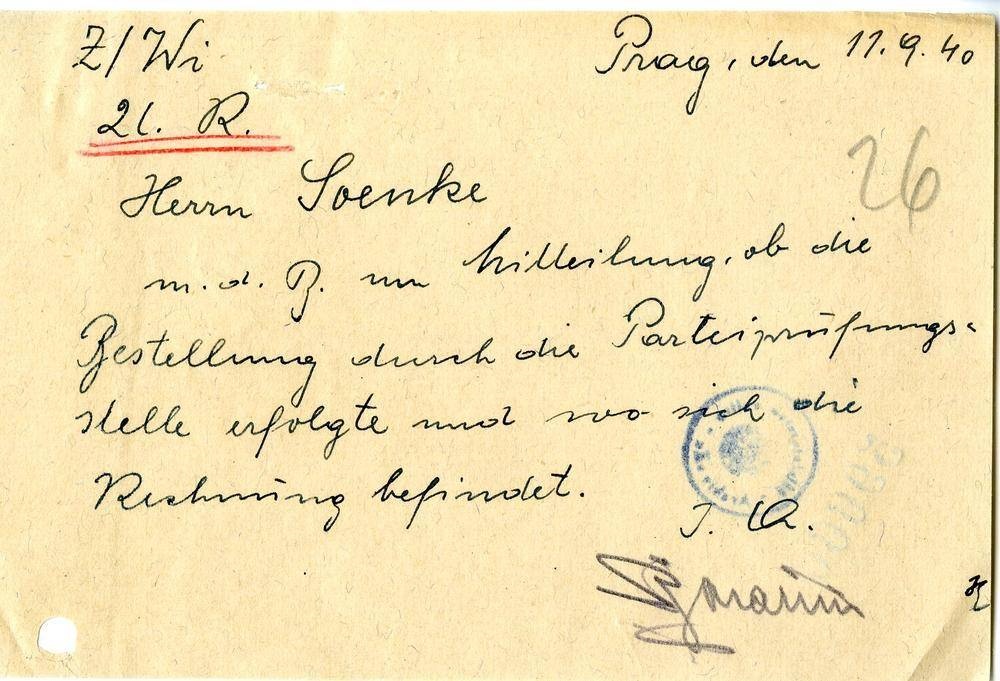 Z/Wi
Prag, den 11.9.40
21. R.
26
Herrn Soenke
m. d. B. um Mitteilung, ob die
Bestellung durch die Parteiprüfungs-
stelle erfolgte und wo sich die
Rechnung befindet.
I. A.